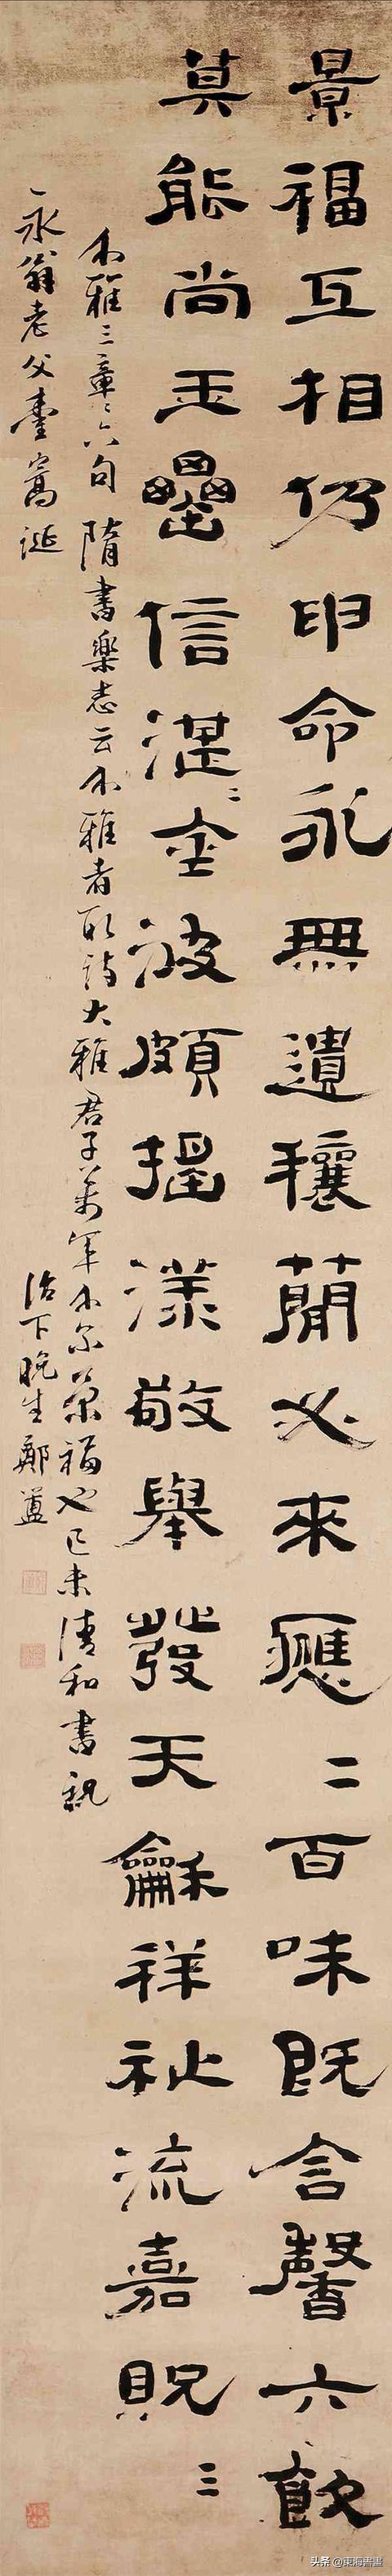 景福互相仍申命永無遺穰蕳必來應二百味既含馨六飲
莫能尚玉罍信湛〻金波頗搖漾敬舉發天龢祥祉流嘉貺三
介雅三章〻六句 隋書樂志云介雅者取詩大雅君子萬年介尔景福也己未清和書祝
永翁老父臺嵩誕
治下晚生鄭簠
头条 @東海書畫